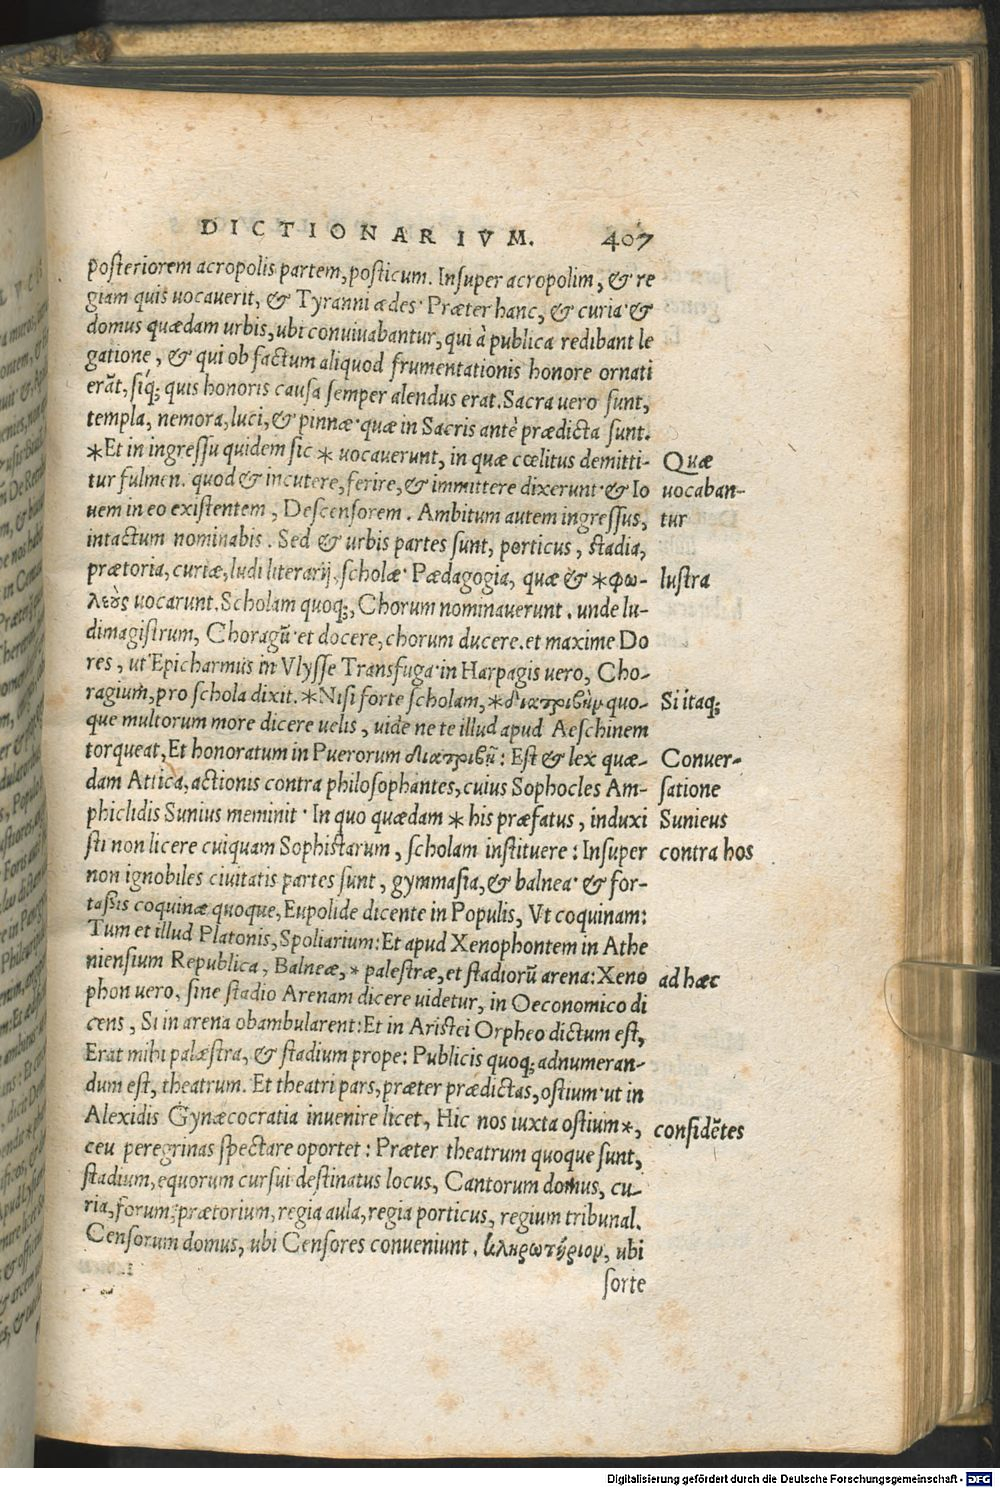 DICTIONARIVM. 407
posteriorem acropolis partem, posticum. Insuper acropolim, & re
giam quis uocauerit, & Tyranni ædes· Præter hanc, & curia· &
domus quædam urbis, ubi conuiuabantur, qui à publica redibant le
gatione, & qui ob factum aliquod frumentationis honore ornati
erāt, siq; quis honoris causa semper alendus erat. Sacra uero sunt,
templa, nemora, luci, & pinnæ· quæ in Sacris antè prædicta sunt.
*Et in ingressu quidem sic * uocauerunt, in quæ cœlitus demitti-
tur fulmen. quod & incutere, ferire, & immittere dixerunt· & Io
uem in eo existentem, Descensorem. Ambitum autem ingressus,
intactum nominabis. Sed & urbis partes sunt, porticus, stadia,
prætoria, curiæ, ludi literarij, scholæ· Pædagogia, quæ & *φω-
λεὸς uocarunt. Scholam quoq;, Chorum nominauerunt. unde lu-
dimagistrum, Choragū· et docere, chorum ducere. et maxime Do
res, ut Epicharmus in Vlysse Transfuga· in Harpagis uero, Cho-
ragium, pro schola dixit. *Nisi forte scholam, *διατριβὴν quo-
que multorum more dicere uelis, uide ne te illud apud Aeschinem
torqueat, Et honoratum in Puerorum διατριβῇ: Est & lex quæ-
dam Attica, actionis contra philosophantes, cuius Sophocles Am-
phiclidis Sunius meminit· In quo quædam * his præfatus, induxi
sti non licere cuiquam Sophistarum, scholam instituere: Insuper
non ignobiles ciuitatis partes sunt, gymmasia, & balnea· & for-
tassis coquinæ quoque, Eupolide dicente in Populis, Vt coquinam:
Tum et illud Platonis, Spoliarium: Et apud Xenophontem in Athe
niensium Republica, Balneæ, * palestræ, et stadiorū arena: Xeno
phon uero, sine stadio Arenam dicere uidetur, in Oeconomico di
cens, Si in arena obambularent: Et in Aristei Orpheo dictum est,
Erat mihi palæstra, & stadium prope: Publicis quoq; adnumeran-
dum est, theatrum. Et theatri pars, præter prædictas, ostium· ut in
Alexidis Gynæcocratia inuenire licet, Hic nos iuxta ostium *,
ceu peregrinas spectare oportet: Præter theatrum quoque sunt,
stadium, equorum cursui destinatus locus, Cantorum domus, cu-
ria, forum, prætorium, regia aula, regia porticus, regium tribunal.
Censorum domus, ubi Censores conueniunt. κληρωτήριον, ubi
sorte
Quæ
uocaban-
tur
lustra
Si itaq;
Conuer-
satione
Sunieus
contra hos
ad hæc
confidētes
Digitalisierung gefördert durch die Deutsche Forschungsgemeinschaft - DFG